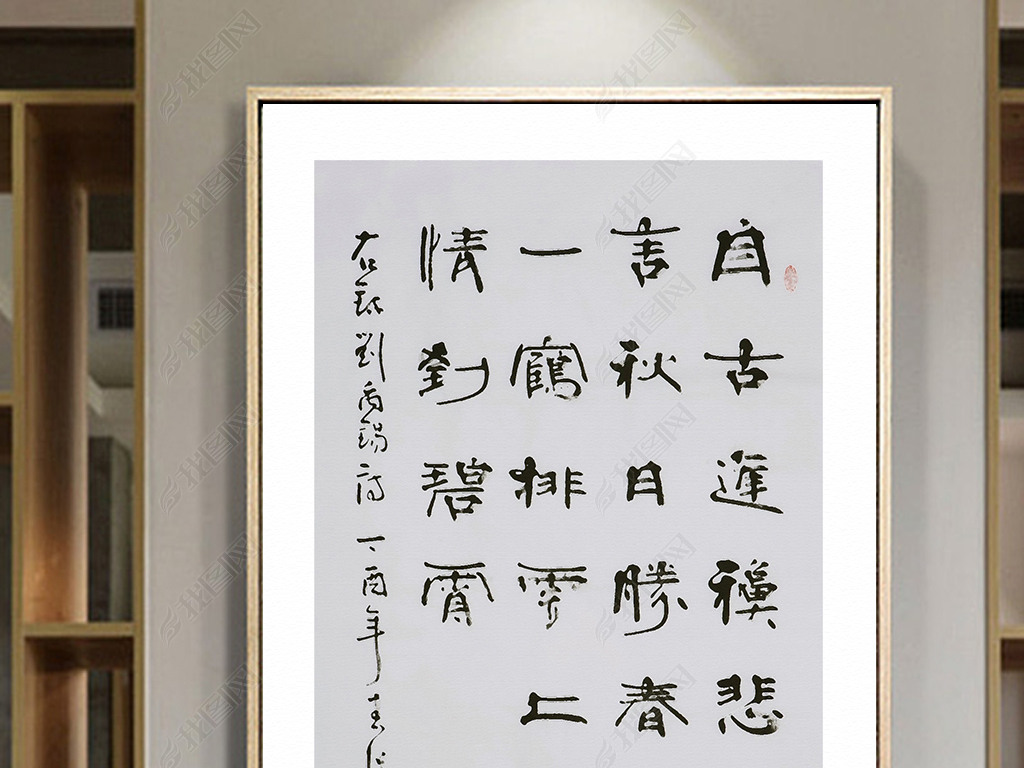 自古逢秋悲
言秋日勝春
一鶴排雲上
情到碧霄
右錄劉禹錫詩 丁酉年
找图网